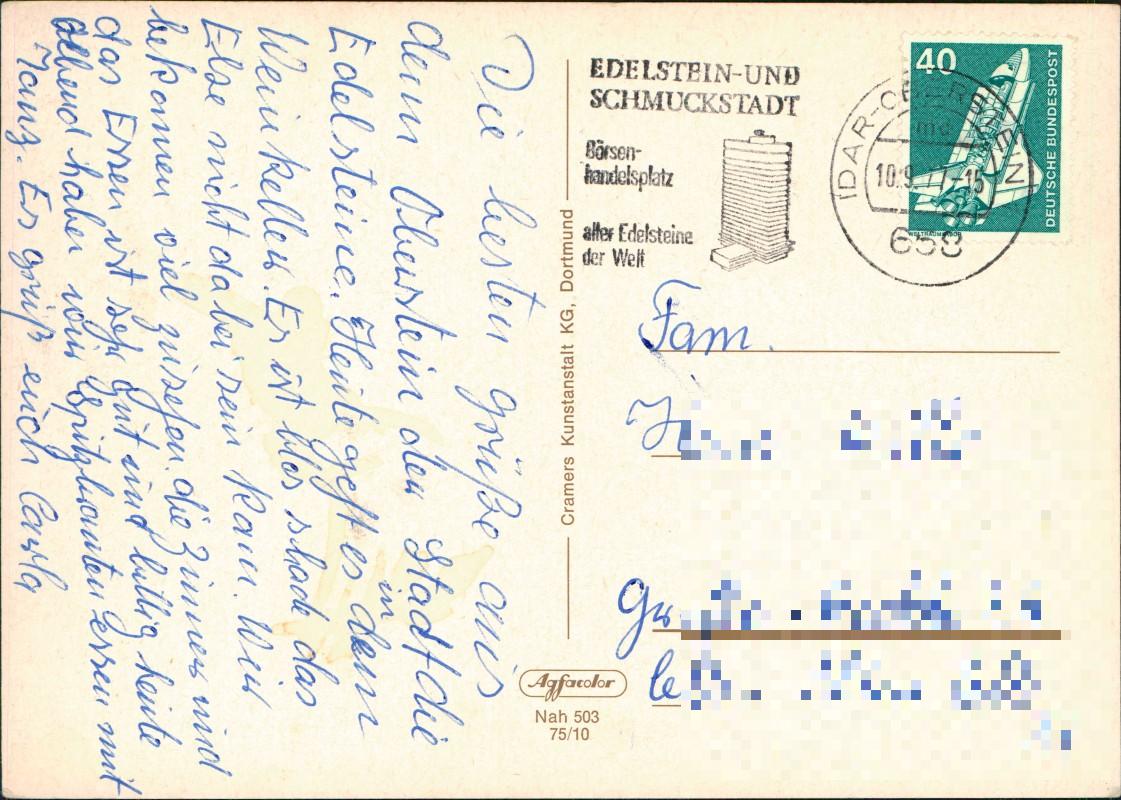 Die besten grüße aus
dem Oberstein der Stadt die
Edelsteine. Heute geht es dem
in
Weinkeller. Es ist blos schade das
Else nicht dabei sein kann. Wir
bekommen viel zusehen. die Zimmer und
das Essen ist sehr gut und billig heute
abend haben wir Spitzbratenessen mit
Tanz. Es grüß euch Carla
Cramers Kunstanstalt KG, Dortmund
Agfacolor
Nah 503
75/10
EDELSTEIN-UND
SCHMUCKSTADT
Börsen-
handelsplatz
aller Edelsteine
der Welt
IDAR-OBERSTEIN
md
10.9.77-15
658
40
DEUTSCHE BUNDESPOST
WELTRAUMLABOR
Fam.